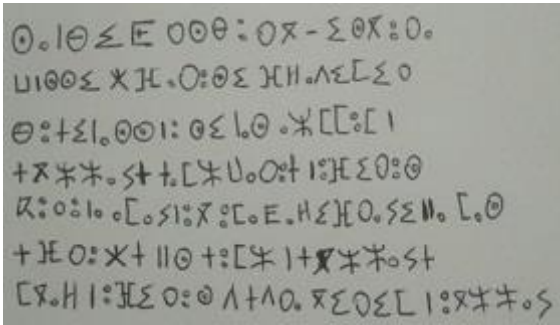 ⵙⴰⵏⴱⵉⴹ ⵔⵔⴱⵓⵔⴳ-ⵉⴱⴳⵓⵔⴰ
ⵡⵏⵙⵙⵉ ⵅ ⴼⴰⵔⵓⵙⵉ ⴼⵍⴰⴷⵉⵎⵉⵔ
ⴱⵓⵜⵉⵏⴰ ⵙⵙⵏⵓ ⵙⵉ ⵏⴰⵙ ⴰⵣ ⵎⵎⵓⵎ ⵏ
ⵜⴳⵣⵣⴰⵢⵜ ⵜⴰⵎⵣⵡⴰⵔⵓⵜ ⵏⵓⴼⵉⵔⵓⵙ
ⴽⵓⵔⵓⵏⴰ ⴰⵎⴰⵢⵏⵓ ⴳ ⵓⵎⴰⴹⴰⵍ ⵉⴼⵔⴰⵢ ⵉⵍⵍⴰ ⵎⴰⵙ
ⵜⴼⵔⵓⵅⵜ ⵍⵙ ⵜⵓⵎⵣ ⵏ ⵜⴳⵣⵣⴰⵢⵜ
ⵎⴳⴰⵍ ⵏⵓⴼⵉⵔⵓⵙ ⴷⵜⴷⵔⴰ ⴳⵉⵔⵉⵎ ⵏⵓⴳⵣⵣⴰⵢ